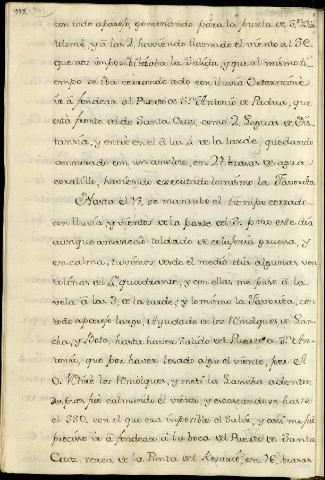 con todo aparejo, governando para la punta de Sn. Bar
tolomé, y á las 2, haviendo llamado el viento al SE.
que nos imposibilitaba la salida, y que al mismo ti
empo se iba cerrando todo con lluvia Determiné
ir á fondear al Puerto de Sn. Antonio de Padua, que
está frente del de Santa Cruz, como 2 Leguas de Dis
tancia, y entré en el á las 4 de la tarde, quedando
amarrado con un anclote, en 27 brasas de agua
cascalillo, haviendo executado lo mismo la Favorita.
Hasta el 13, se mantubo el tiempo cerrado
con lluvia y vientos de la parte del S. pero este dia
aunque amaneció toldado de celageria gruesa, y
en calma, tuvimos desde el medio dia algunas ven
tolinas del 4º quadrante, y con ellas me puse á la
vela á las 3, de la tarde; y lo mismo la Favorita, con
todo aparejo largo, Ayudado de los Remolques, de Lan
cha, y Bote, hasta haver salido del Puerto de Sn. An
tonio, que por haver lesado algo el viento, por el
O. Quité los Remolques, y metí la Lancha adentro;
despues fué calmando el viento, y escaseandose hasta
el SSO, con el que era imposible el salir, y así me fué
preciso ir á fondear á la boca del Puerto de Santa
Cruz, cerca de la Punta del Rosario, en 76, brasas